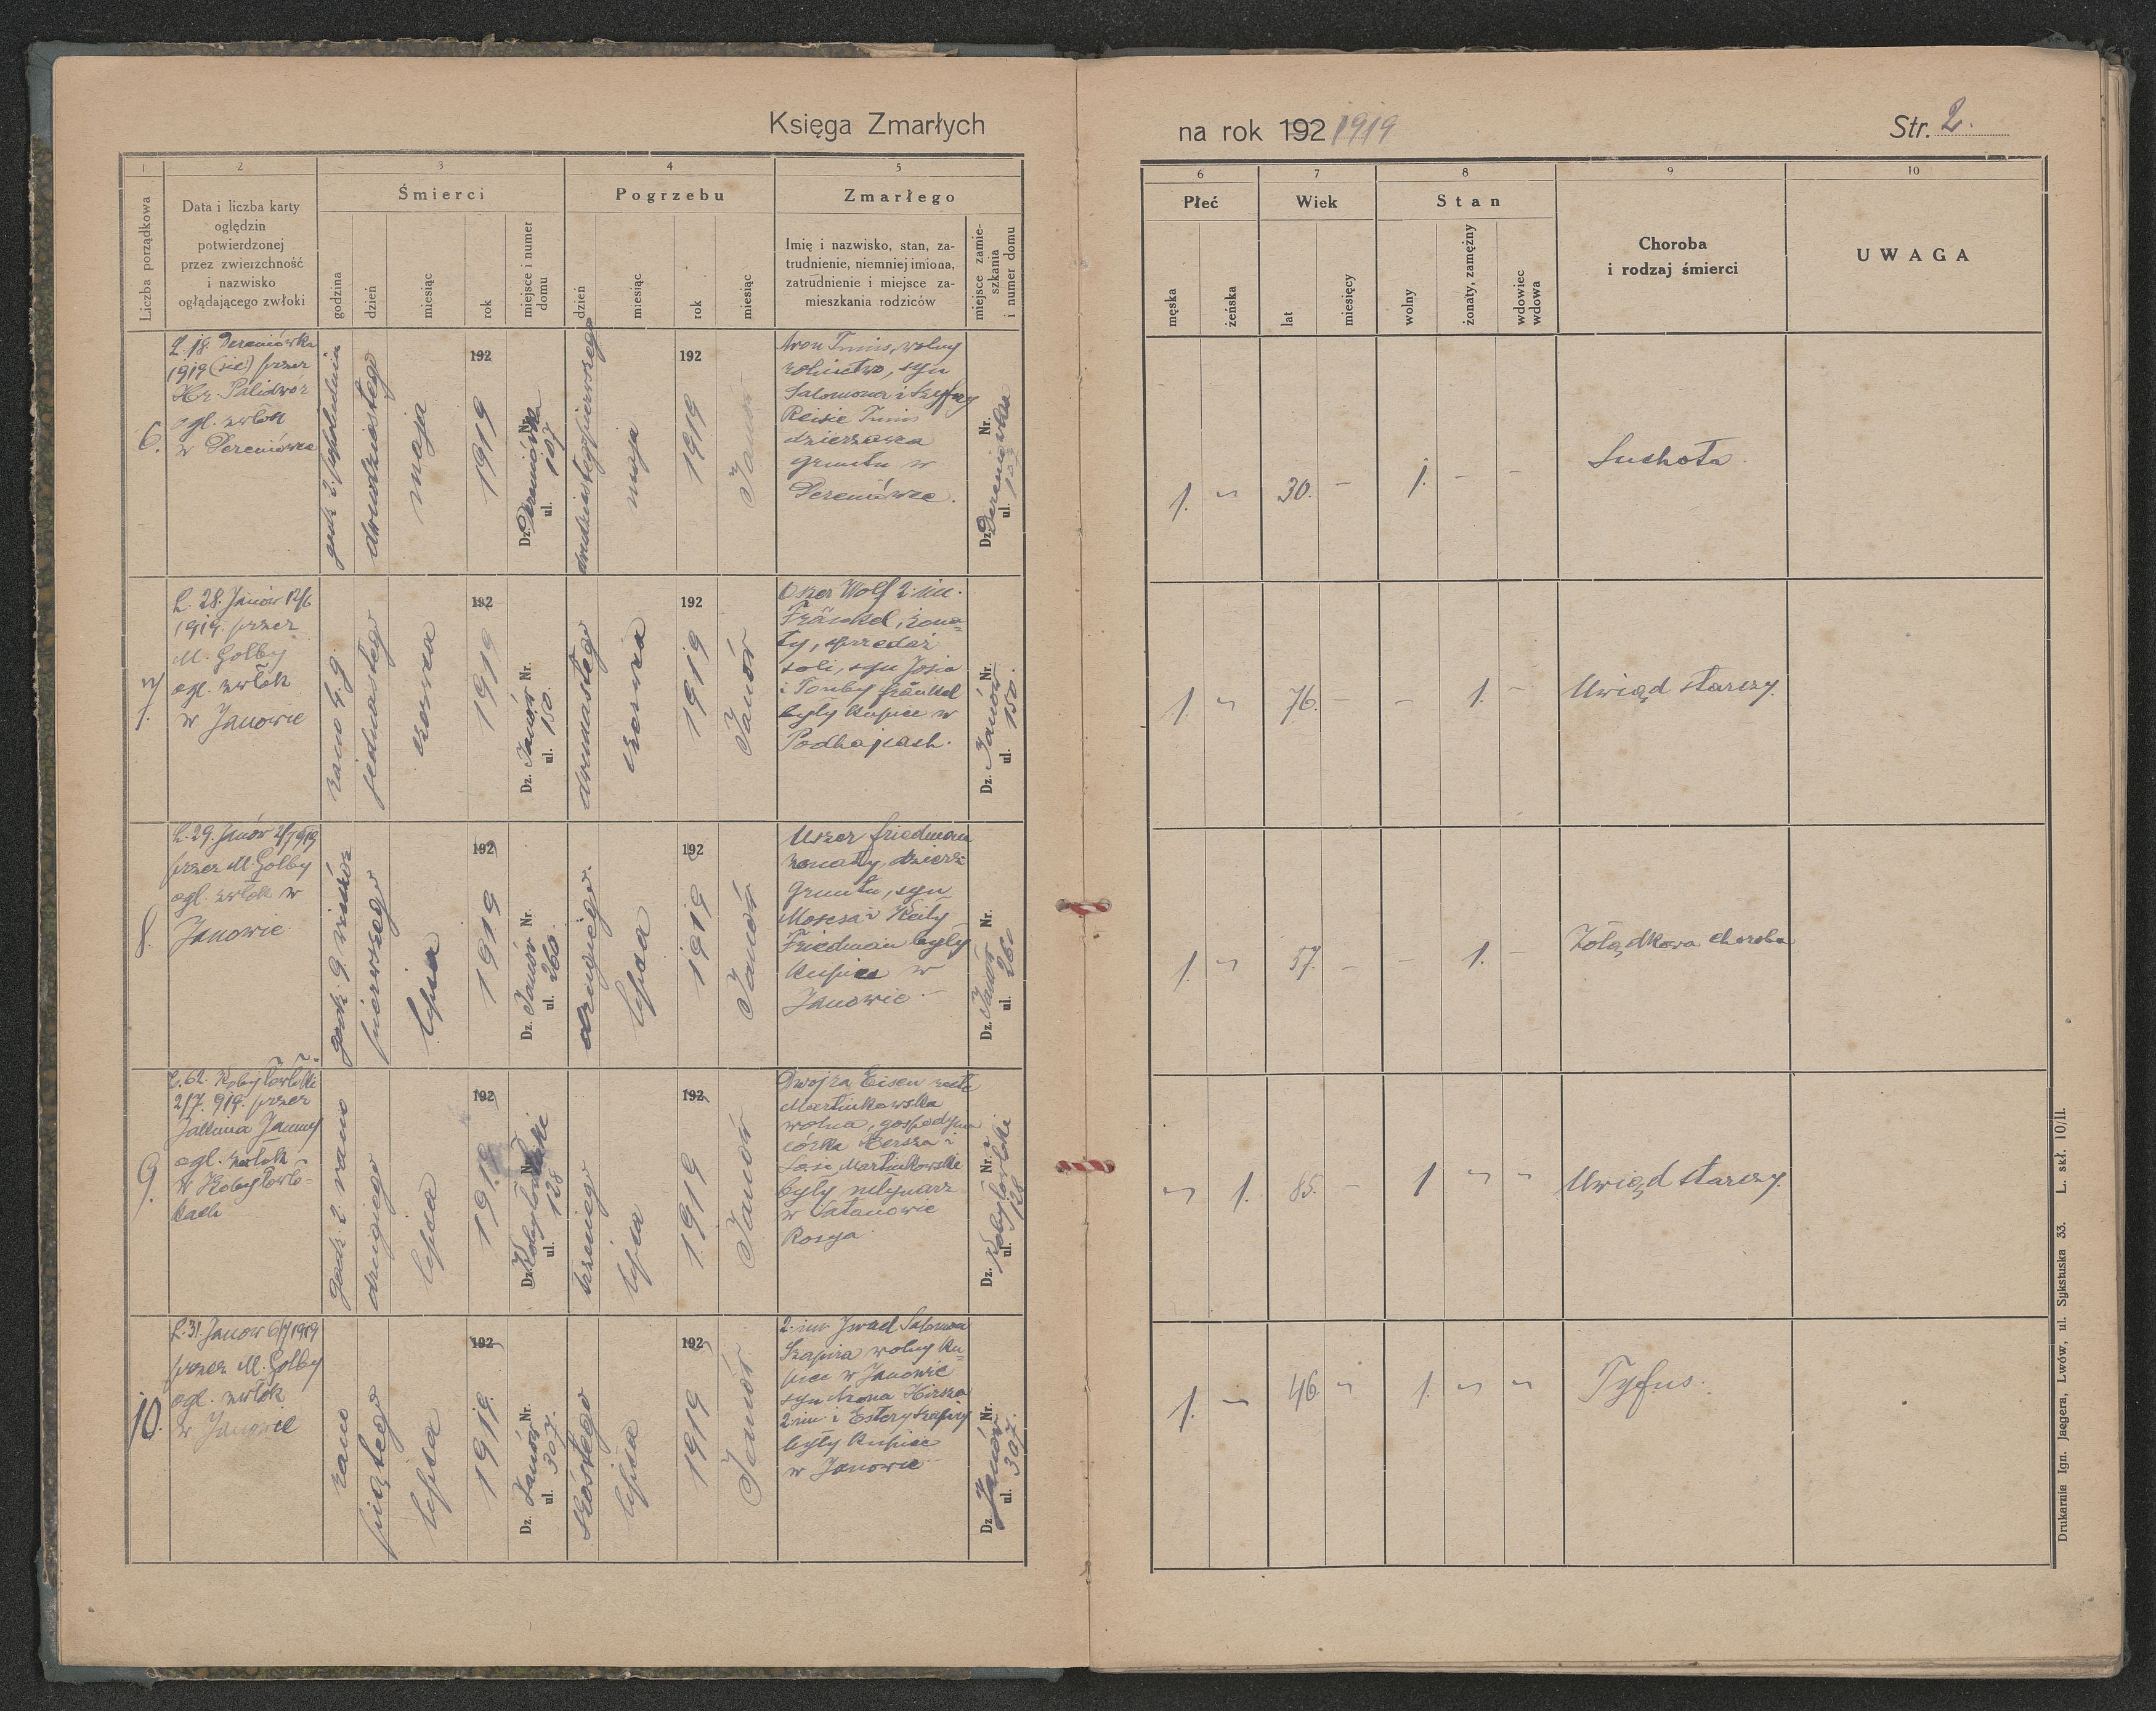 Księga Zmarłych
na rok 192 1919
Str. 2.
1
2
3
4
5
Liczba porządkowa
Data i liczba karty
oględzin
potwierdzonej
przez zwierzchność
i nazwisko
oglądającego zwłoki
Śmierci
godzina
dzień
miesiąc
rok
miejsce i numer
domu
Pogrzebu
dzień
miesiąc
rok
miesiąc
Zmarłego
Imię i nazwisko, stan, za-
trudnienie, niemniej imiona,
zatrudnienie i miejsce za-
mieszkania rodziców
miejsce zamie-
szkania
i numer domu
6
7
8
9
10
Płeć
męska
żeńska
Wiek
lat
miesięcy
Stan
wolny
żonaty, zamężny
wdowiec
wdowa
Choroba
i rodzaj śmierci
UWAGA
6.
L. 18. Dereniówka
1919 (sic) przez
Hr. Palidwór
ogl. zwłok
w Dereniówce
godz. 2. popołudniu
dwudziestego
maja
192
1919
Dz. Dereniówka Nr.
ul. 107
dwudziestegopierwszego
maja
192
1919
Janów
Aron Innis, wolny
rolnictwo, syn
Salomona i Szyfry
Reisie Innis
dzierzawca
gruntu w
Dereniówce.
Dz. Dereniówka Nr.
ul. 107
1.
30.
1.
Suchota
7.
L. 28. Janów 12/6
1919. przez
M. Golby
ogl. zwłok
w Janowie
rano g. 9.
jedenastego
czerwca
192
1919
Dz. Janów Nr.
ul. 150.
dwunastego
czerwca
192
1919
Janów
Oszer Wolf 2. im.
Fränkel, żona-
ty, sprzedaż
soli, syn Josia
i Touby Fränkel
były kupiec w
Podhajcach.
Dz. Janów Nr.
ul. 150.
1.
76.
1.
Uwiąd starczy.
8.
L. 29. Janów 2/7 1919
przez M. Golby
ogl. zwłok w
Janowie
godz. 9 wieczór
pierwszego
lipca
192
1919
Dz. Janów Nr.
ul. 260.
drugiego
lipca
192
1919
Janów
Uszer Friedman
żonaty, dzierż
gruntu, syn
Mosesa i Keily
Friedman były
kupiec w
Janowie
Dz. Janów Nr.
ul. 260
1.
57.
1.
Żołądkowa choroba
9.
L. 62. Kobyłowłoki
2/7. 919. przez
Jakima Jaumy
ogl. zwłok
w Kobyłowło-
kach
godz. 2. rano
drugiego
lipca
192
1919.
Dz. Kobyłowłoki Nr.
ul. 128
trzeciego
lipca
192
1919
Janów
Dwojra Eisen recte
Martinkowska
wolna, gospodyni
córka Hersza i
Sosi Martinkowskie
były młynarz
w Satanowie
Rosya
Dz. Kobyłowłoki Nr.
ul. 128
1.
85.
1
Uwiąd starczy.
10.
L. 31. Janów 6/7 1919
przez M. Golby
ogl. zwłok
w Janowie
rano
piątego
lipca
192
1919.
Dz. Janów Nr.
ul. 307.
szóstego
lipca
192
1919
Janów
2. im. Israel Salomon
Szapira wolny ku-
piec w Janowie
syn Arona Hirsza
2. im. i Estery Szapiry
były kupiec
w Janowie
Dz. Janów Nr.
ul. 307.
1.
46.
1.
Tyfus.
Drukarnia Ign. Jaegera, Lwów, ul. Sykstuska 33. L. skł. 10/II.